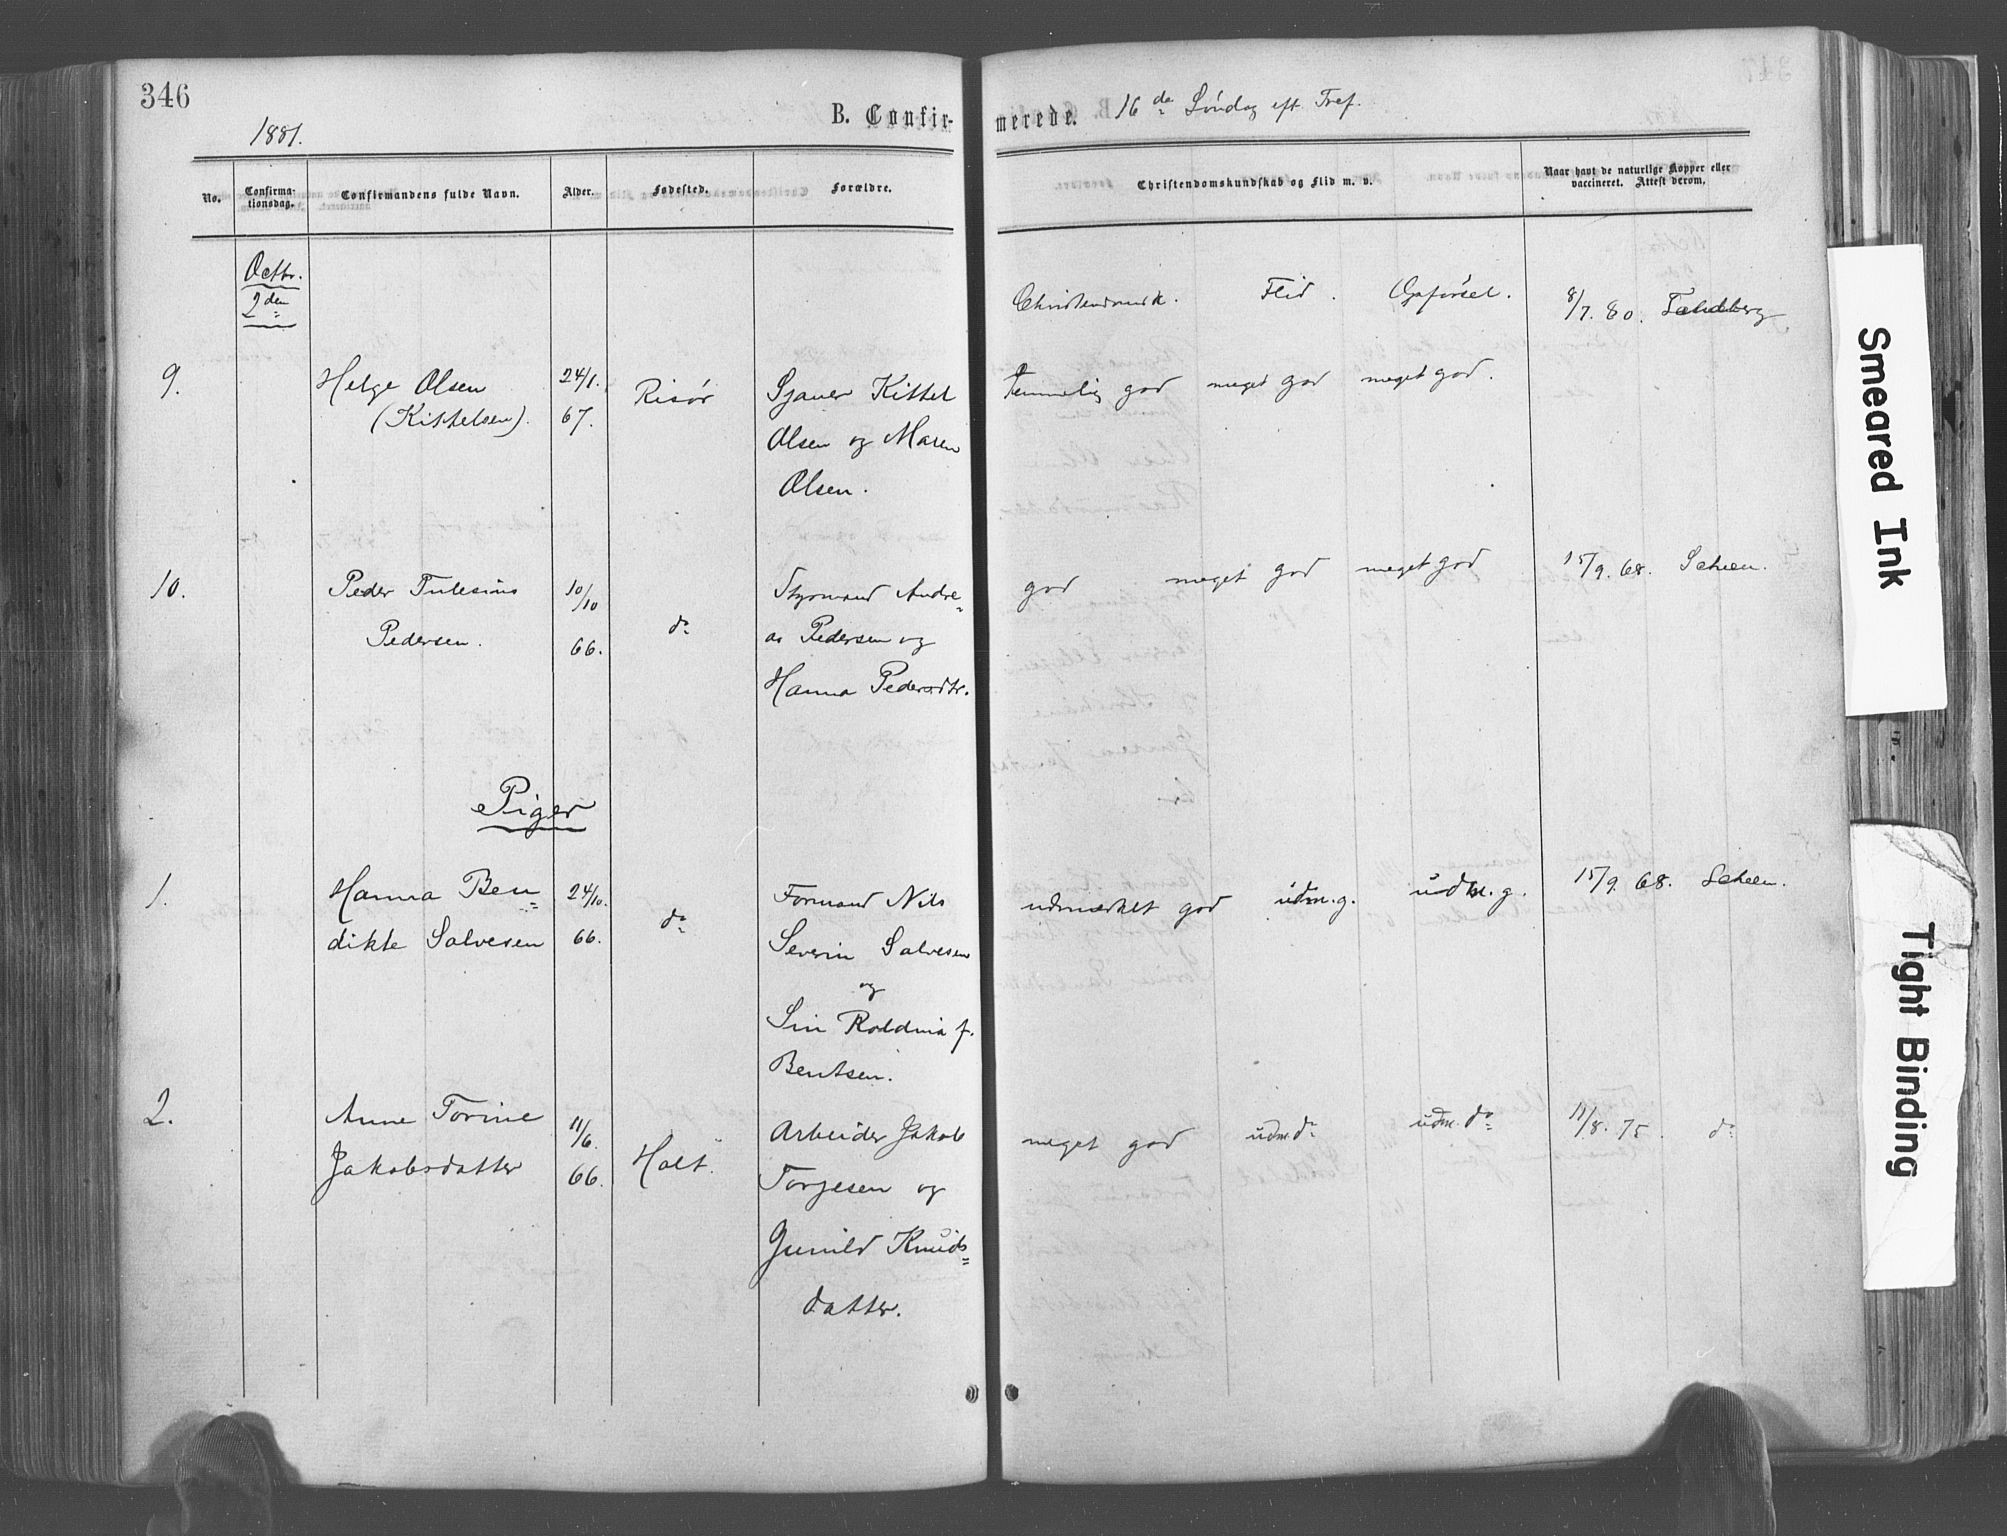 346
B. Confir-
merede.
16de Søndag eft. Tref.
1881.
No.
Confirma-
tionsdag.
Confirmandens fulde Navn.
Alder.
Fødested.
Forældre.
Christendomskundskab og Flid m. v.
Naar havt de naturlige Kopper eller
vaccineret. Attest derom.
Octbr.
2den
Christendomsk. Flid. Opførsel. 8/7. 80.
9. Helge Olsen 24/1. Risør Sjauer Kittel Temmelig god meget god meget god.
(Kittelsen). 67. Olsen og Maren
Olsen.
10. Peder Tulesius 10/10 do Styrmand Andre= god meget god meget god 15/9. 68. Scheen.
Pedersen. 66. as Pedersen og
Hanna Pedersdtr.
Piger
1. Hanna Ben= 24/10. do Formand Nils udmærket god udm. g. udm. g. 15/9. 68. Scheen.
dikte Salvesen 66. Severin Salvesen
og
f.
Bentsen.
2. Anne Torine 11/6. Holt. Arbeider Jakob meget god udm. do udm. do 11/8. 75. do
Jakobsdatter 66. Torjesen og
Gunild Knuds=
datter.
Smeared Ink
Tight Binding